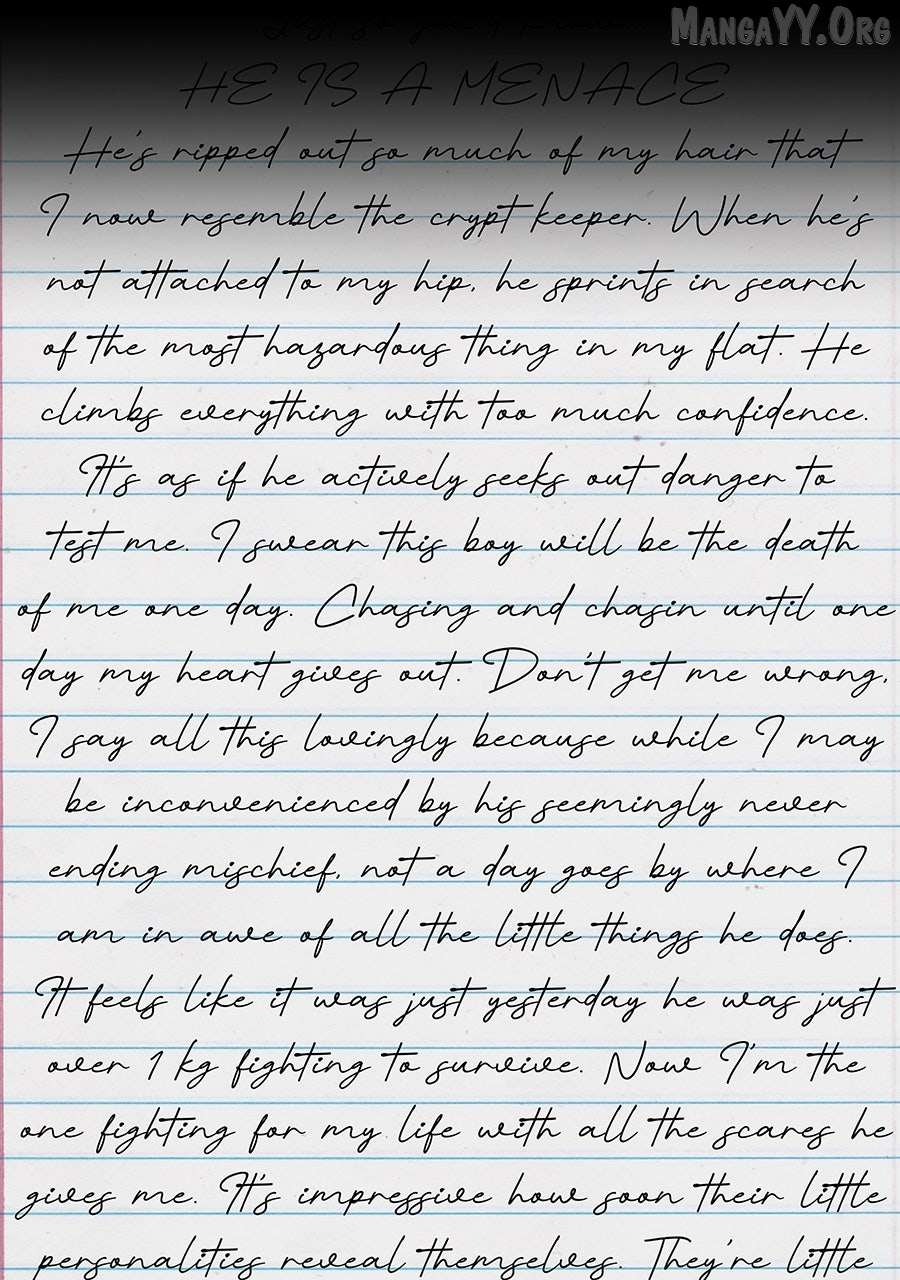 MangaYY.Org
HE IS A MENACE
He's ripped out so much of my hair that
I now resemble the crypt keeper. When he's
not attached to my hip, he sprints in search
of the most hazardous thing in my flat. He
climbs everything with too much confidence.
It's as if he actively seeks out danger to
test me. I swear this boy will be the death
of me one day. Chasing and chasin until one
day my heart gives out. Don't get me wrong,
I say all this lovingly because while I may
be inconvenienced by his seemingly never
ending mischief, not a day goes by where I
am in awe of all the little things he does.
It feels like it was just yesterday he was just
over 1 kg fighting to survive. Now I'm the
one fighting for my life with all the scares he
gives me. It's impressive how soon their little
personalities reveal themselves. They're little